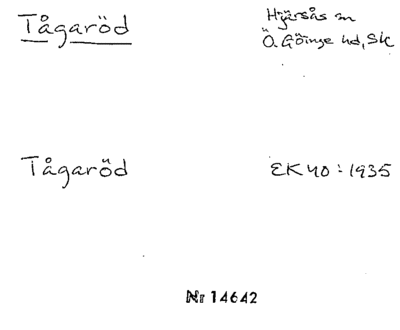 Tågaröd
Hjärsås sn
Ö. Göinge hd, Sk
Tågaröd
EK 40:1935
Nr 14642